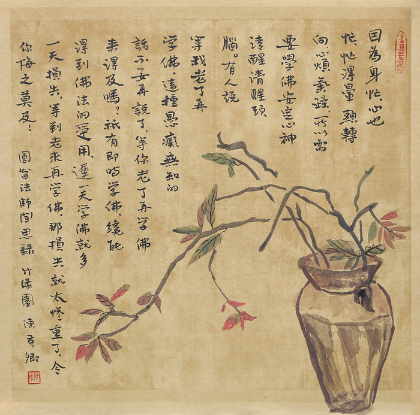 因為身忙心也
忙忙得暈頭轉
向心煩氣躁所以需
要學佛安定心神
清醒清醒頭
腦。有人說
等我老了再
學佛、這種愚癡無知的
話不要再說了、等你老了再學佛
來得及嗎？祇有即時學佛、纔能
得到佛法的受用、遲一天學佛就多
一天損失、等到老來再學佛、那損失就太慘重了、令
你悔之莫及！ 圓 法師開思錄 竹緣園 清 卿